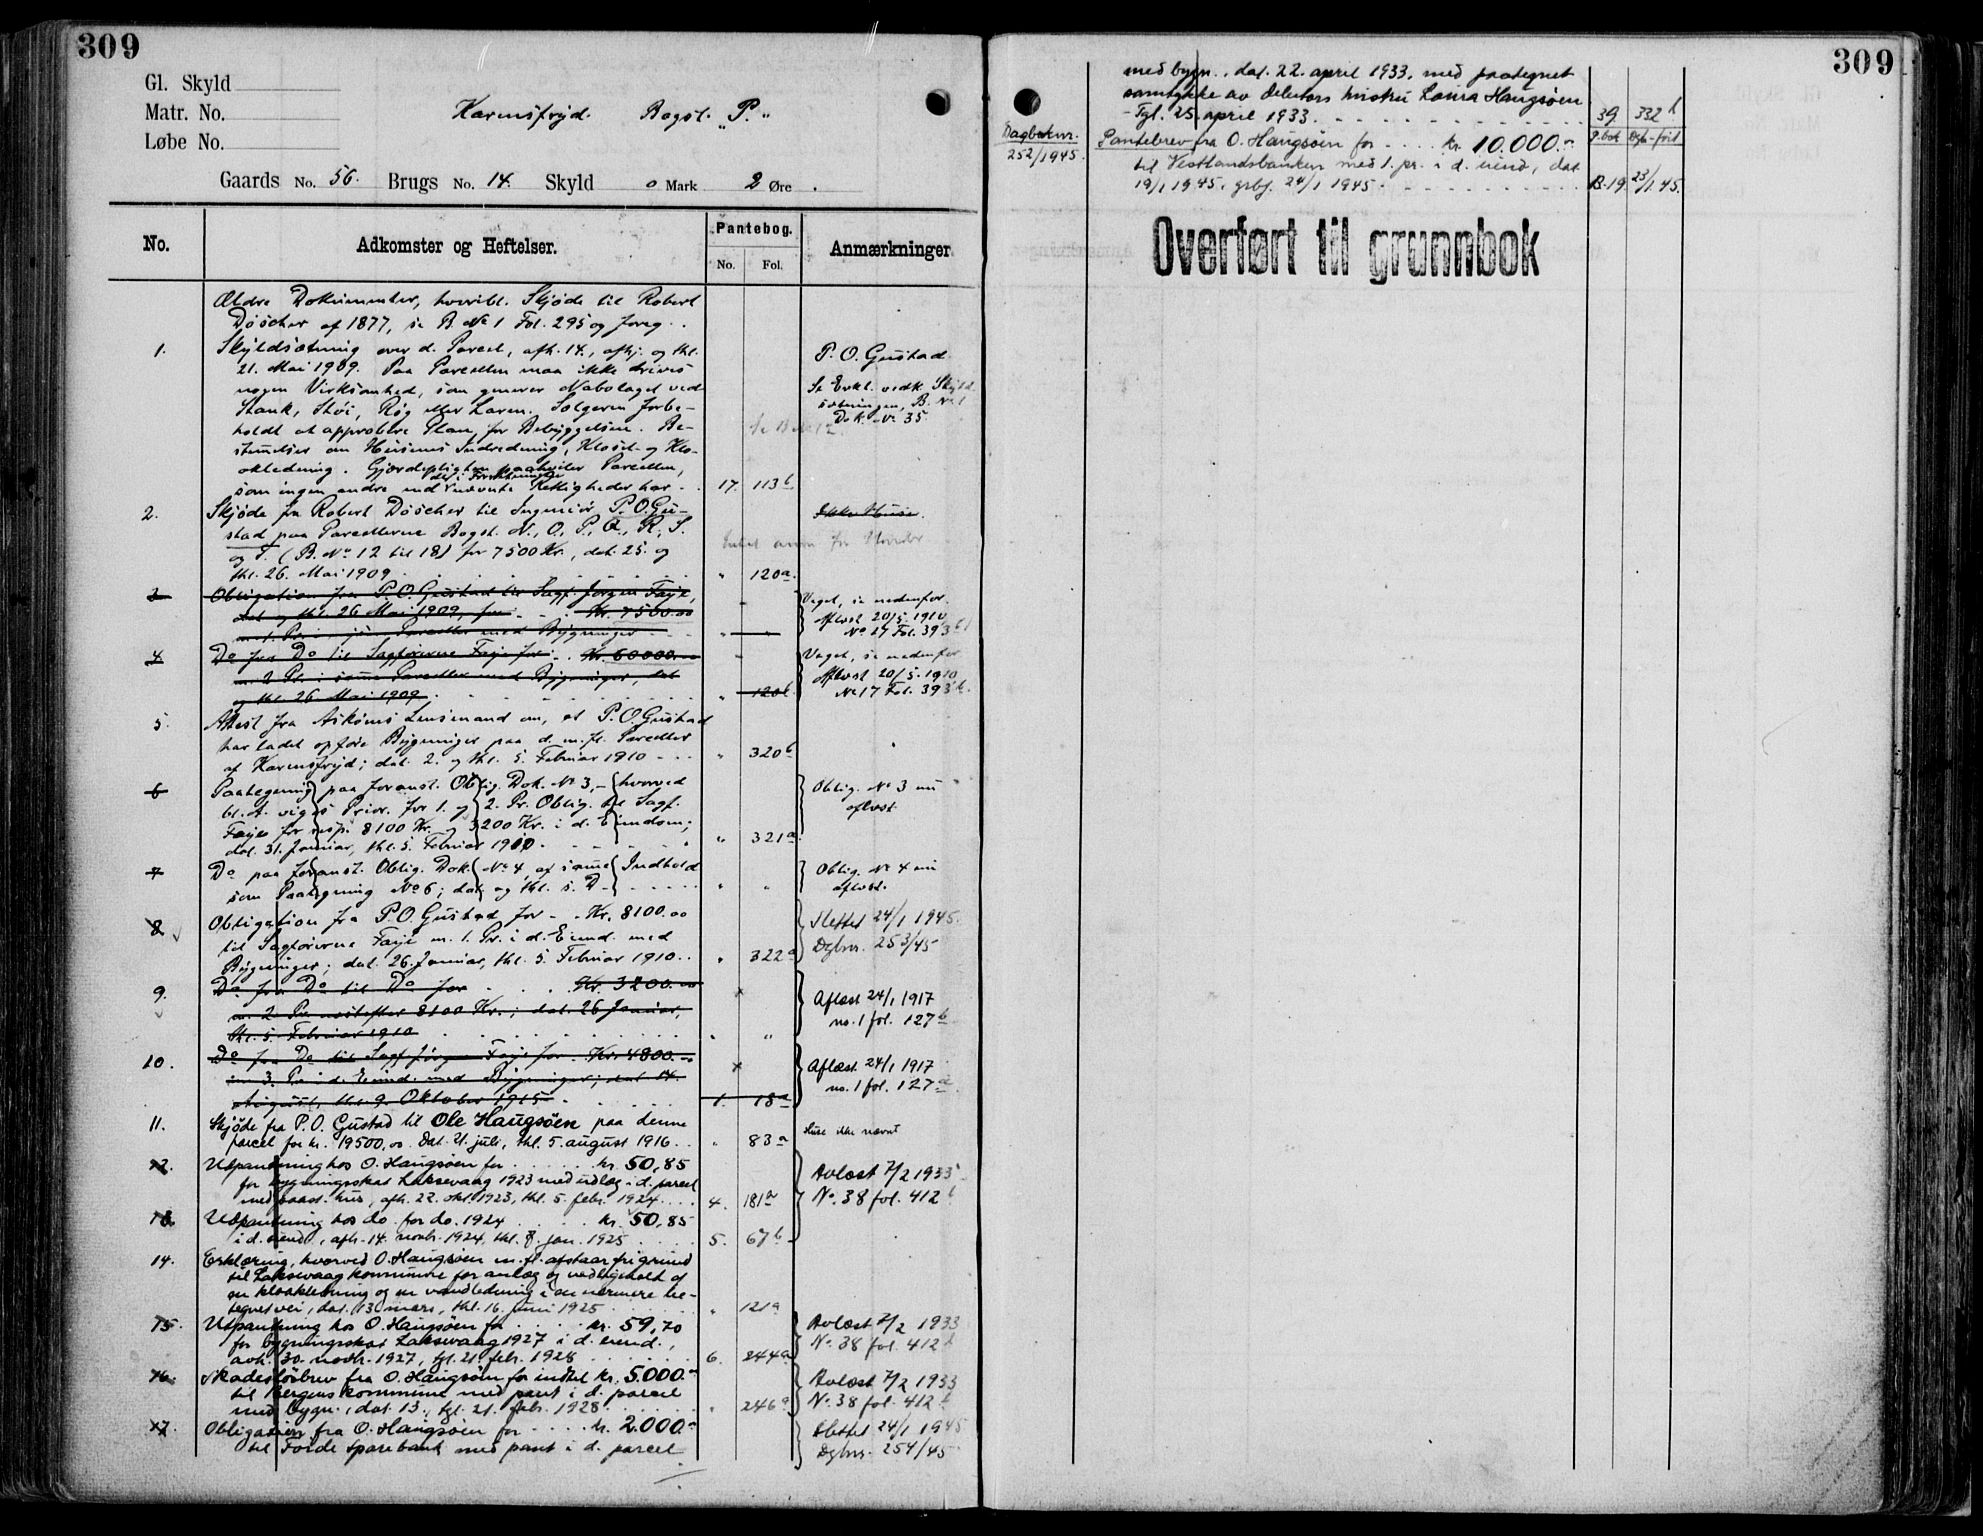 309
Gl. Skyld
Matr. No.
Løbe No.
Karensfryd. Bogst. "P."
Gaards No. 56. Brugs No. 14. Skyld 0 Mark 2 Øre .
No. Adkomster og Heftelser. Pantebog. Anmærkninger
No. Fol.
Ældre Dokumenter, hvoribl. Skjøde til Robert
Döscher af 1877, se B No 1 Fol. 295 og foreg. .
1. Skyldsætning over d. Parcel, afh. 14., afhj. og thl. P. O. Gustad
21. Mai 1909. Paa Parcellen maa ikke drives
nogen Virksomhed, som generer Nabolaget ved Se Erkl. vedk. Skyld
Stank, Støi, Røg eller Larm. Sælgeren forbe- sætningen, B. No 1
holdt at approbere Plan for Bebyggelsen. Be- Dok. No 35.
stemmelser om Husenes Indredning, Kloset- og Klo-
akledning. Gjærdepligten paahviler Parcellen,
som ingen andre end de i Forretningen nævnte Rettigheder har . 17. 113b
2. Skjøde fra Robert Döscher til Ingeniør P. O. Gu- Ikke Huse.
stad paa Parcellerne Bogst. N., O., P., Q., R., S.
og T. (B. No 12 til 18) for 7500 Kr., dat. 25. og
thl. 26. Mai 1909 . . . " 120a.
3 Obligation fra P. O. Gustad til Sagf. Jørgen Faye, Veget, se nedenfor.
dat og thl. 26 Mai 1909, for . . Kr. 7500.00 Aflæst 20/5. 1910
m. 1. Pr. i syv Parceller med Bygninger . . " " No 17 Fol. 393
4 Do fra Do til Sagførerne Faye for . . Kr. 60000.00 Veget, se nedenfor
m. 2 Pr. i samme Parceller med Bygninger, dat Aflæst 20/5. 1910
og thl. 26 Mai 1909 . " 120b. No 17 Fol. 393b.
5. Attest fra Askøens Lensmand om, at P. O. Gustad
har ladet opføre Bygninger paa d. m. fl. Parceller
af Karensfryd; dat. 2. og thl. 5. Februar 1910 - . . " 320b
6 Paategning paa foranst. Oblig. Dok. No 3, - hvorved Oblig. No 3 nu
bl. a. viges Prior. for 1. og 2. Pr. Oblig. til Sagf. aflæst.
Faye for resp. 8100 Kr. og 3200 Kr. i d. Eiendom;
dat. 31. Januar, thl. 5. Februar 1910. " 321a
7 Do paa foranst. Oblig. Dok. No 4, af samme Indhold Oblig. No 4 nu
som Paategning No 6; dat. og thl. s. D. . . . " " aflæst.
8. Obligation fra P. O. Gustad for - . Kr. 8100.00 Slettet 24/1 1945.
til Sagførerne Faye m. 1. Pr. i d. Eiend. med Dgbnr. 253/45
Bygninger; dat. 26. Januar, thl. 5. Februar 1910 . . " 322a
9. Do fra Do til Do for . . . Kr. 3200.00 Aflæst 24/1 1917
m. 2 Pr. næstefter 8100 Kr.; dat. 26 Januar, no. 1 fol. 127b
thl. 5. Februar 1910 . . . " "
10. Do fra Do til Sagf. Jørgen Faye for . Kr. 4800.- Aflæst 24/1 1917
m 3. Pr. i d. Eiend. med Bygninger; dat 14. no. 1 fol. 127a
August, thl. 9. Oktober 1915 . . . 1. 18a
11. Skjøde fra P. O. Gustad til Ole Haugsøen paa denne Huse ikke nævnt
parcel for kr. 19500,00. Dat. 21. juli, thl. 5. august 1916. . " 83a
12. Utpantning hos O. Haugsøen for . . . kr. 50,85 Avlæst 7/2 1933
for bygningsskat Laksevaag 1923 med utlæg i d. parcel No. 38 fol. 412b
med paast. hus, afh. 22. okt. 1923, thl. 5. febr. 1924. . . . 4. 181a
13. Utpantning hos do. for do. 1924 . . . kr. 50,85
i d. eiend., afh. 14. novbr. 1924, thl. 8. jan. 1925 . . . 5. 67b
14. Erklæring, hvorved O. Haugsøen m. fl. afstaar fri grund
til Laksevaag kommune for anlæg og vedligehold af
en kloakledning og en vandledning i en nærmere be-
tegnet vei, dat. 13. mars, thl. 16. juni 1925 . . . " 121a
15. Utpantning hos O. Haugsøen for . . . kr. 59,70 Avlæst 7/2 1933
for bygningsskat Laksevaag 1927 i d. eiend., No. 38 fol. 412b
avh. 30. novbr. 1927, tgl. 21. febr. 1928 . . . 6. 244a
16. Skadesløsbrev fra O. Haugsøen for indtil kr. 5.000.- Avlæst 7/2 1933
til Bergens kommune med pant i d. parcel No. 38 fol. 412b
med bygn., dat. 13., tgl. 21. febr. 1928 . . . " 246a
17. Obligation fra O. Haugsøen for . . . kr. 2.000.- Slettet 24/1 1945
til Førde Sparebank med pant i d. parcel Dgbnr. 254/45
309
med bygn., dat. 22. april 1933, med paategnet
samtykke av debitors hustru Laura Haugsøen.
- Tgl. 25. april 1933 . . . 39 332b
Dagboknr. 252/1945. Pantebrev fra O. Haugsøen for . . . kr. 10.000.- P.bok Dgb-ført
til Vestlandsbanken med 1. pr. i d. eiend, dat
19/1 1945, grbf. 24/1 1945 . . . B.19. 23/1.45.
Overført til grunnbok